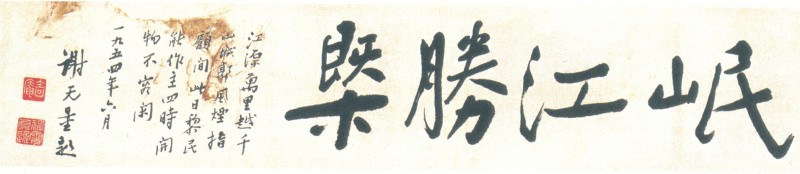 岷江勝槩
江源萬里越千
山城郭風煙指
顧間此日黎民
能作主四時開
物不容閑
一九五四年六月
謝无量題